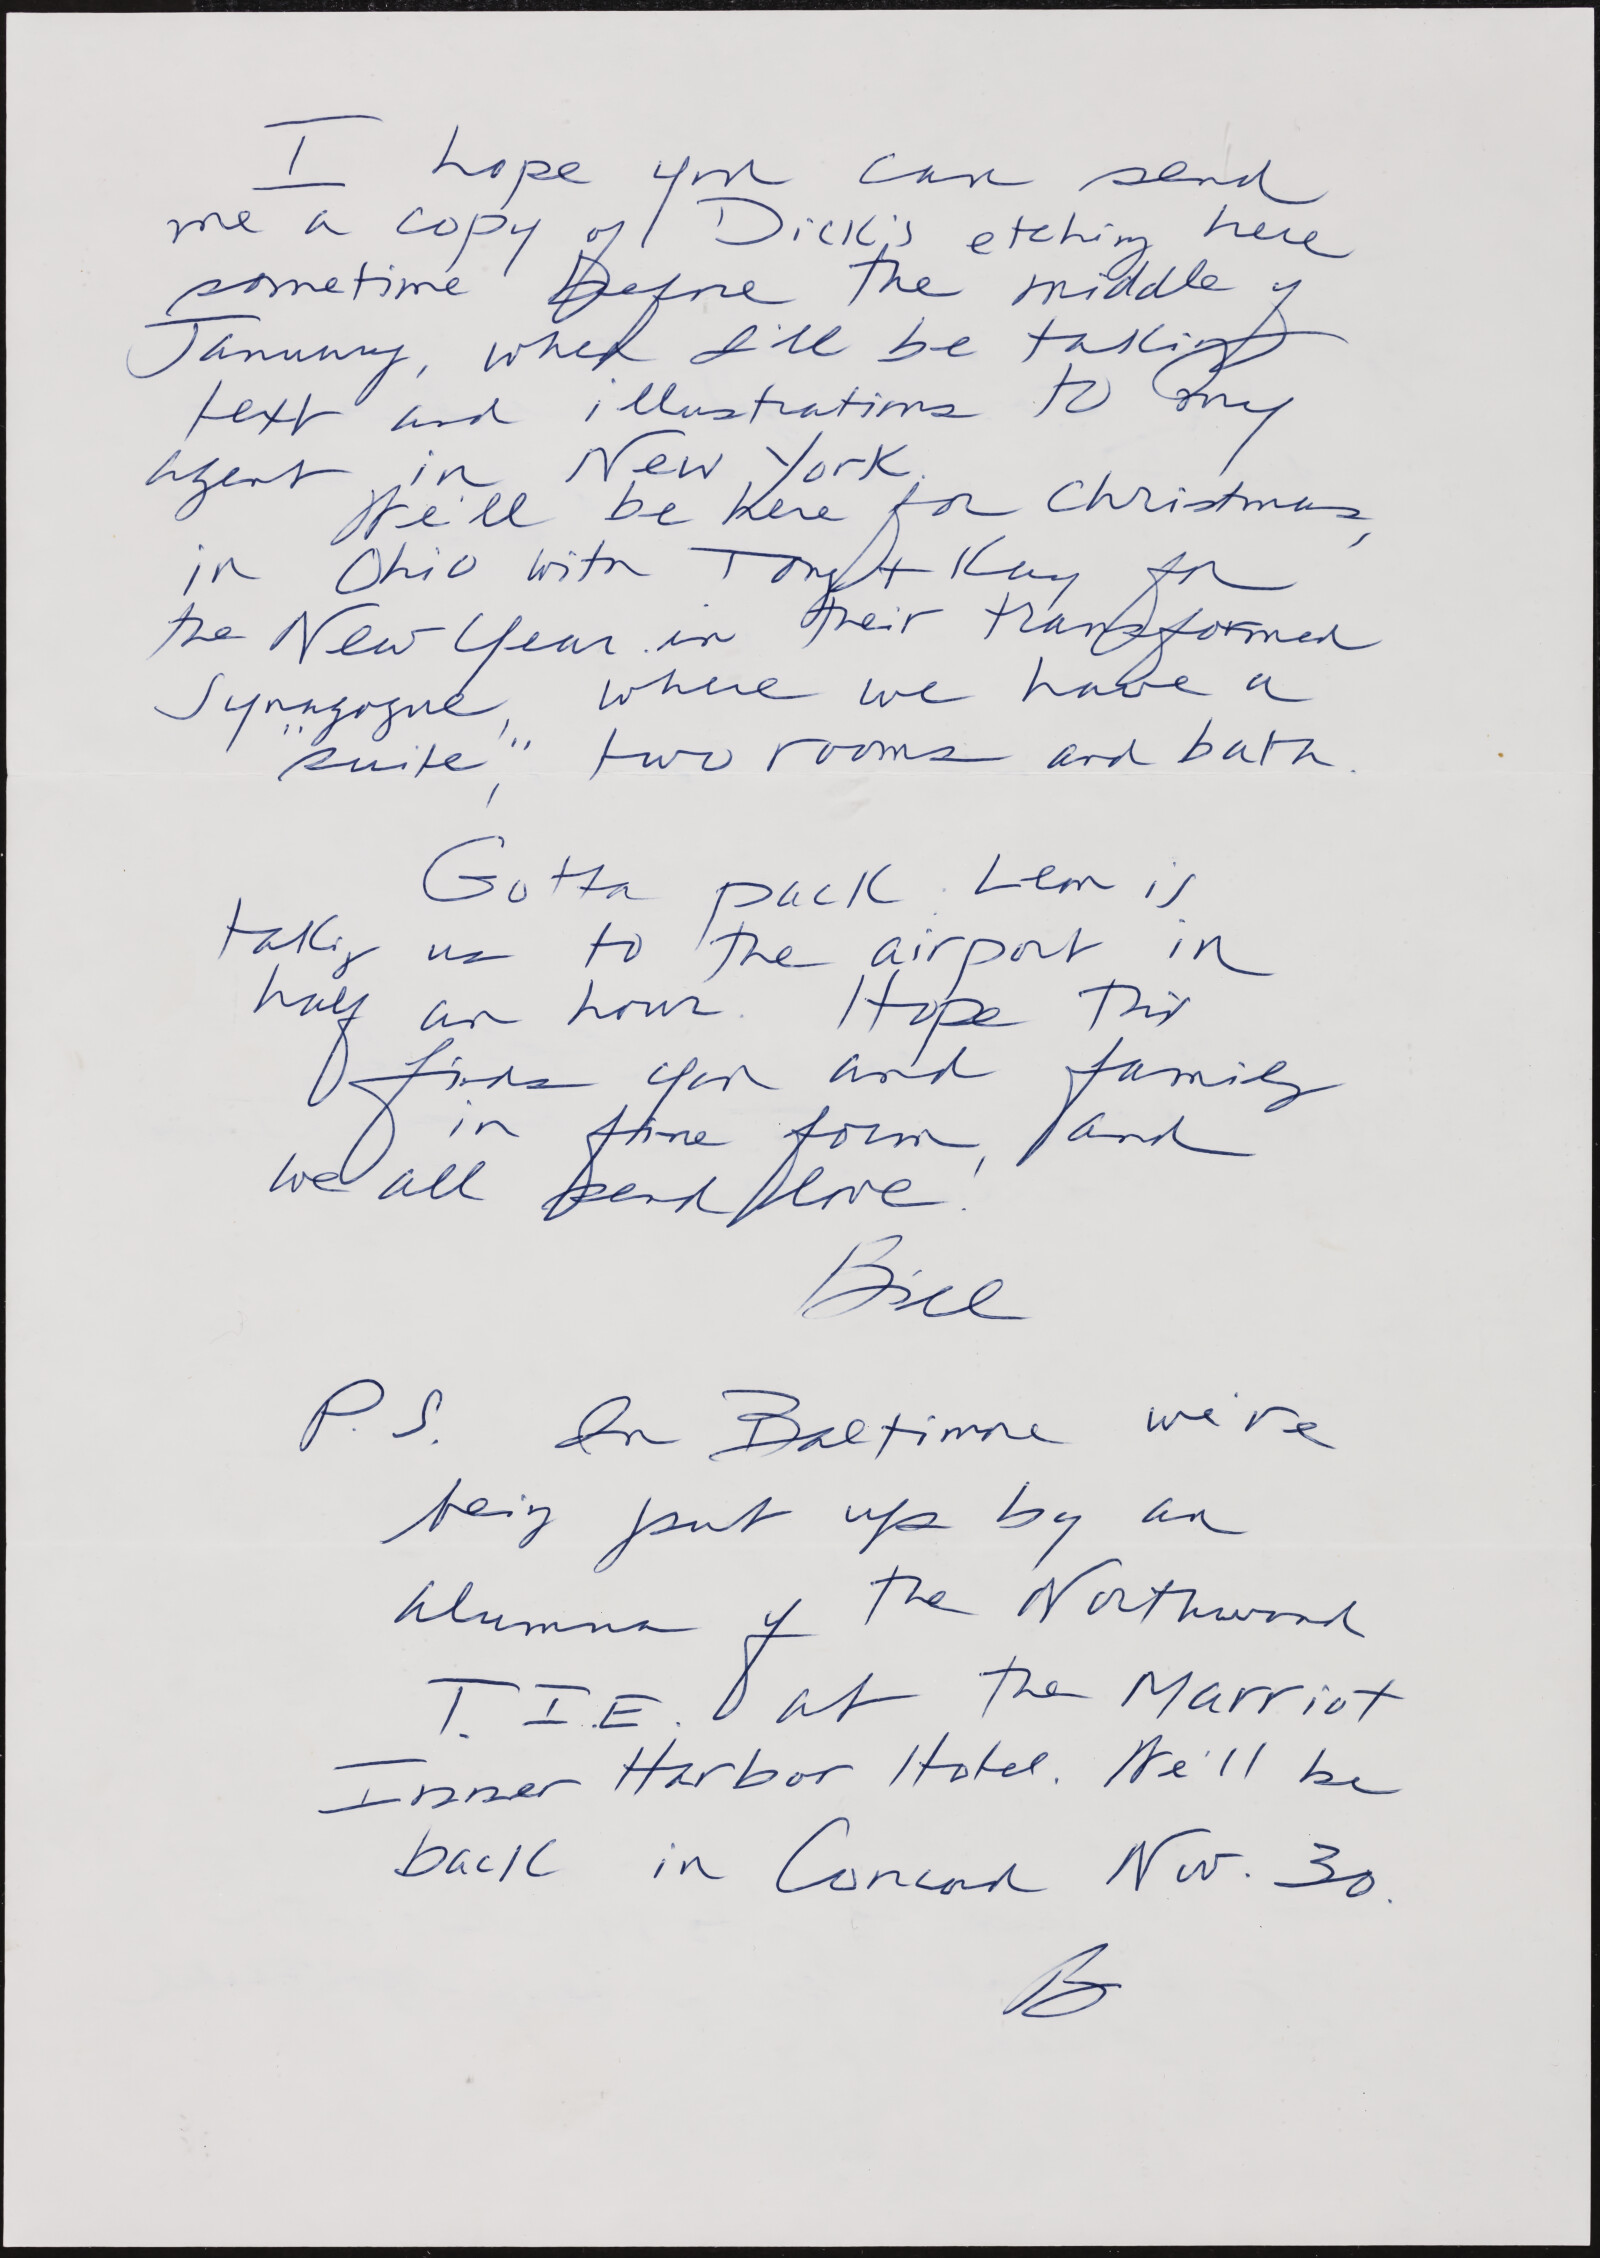 I hope you can send
me a copy of Dick's etching here
sometime before the middle of
January, when I'll be taking
text and illustrations to my
agent in New York.
We'll be here for Christmas,
in Ohio with Tony + Kay for
the New Year in their transformed
Synagogue, where we have a
"suite," two rooms and bath.
Gotta pack. Leon is
taking us to the airport in
half an hour. Hope this
finds you and family
in fine form, and
we all send love!
Bill
P.S. In Baltimore we're
being put up by an
alumna of the Northwood
T.I.E. at the Marriot
Inner Harbor Hotel. We'll be
back in Concord Nov. 30.
B